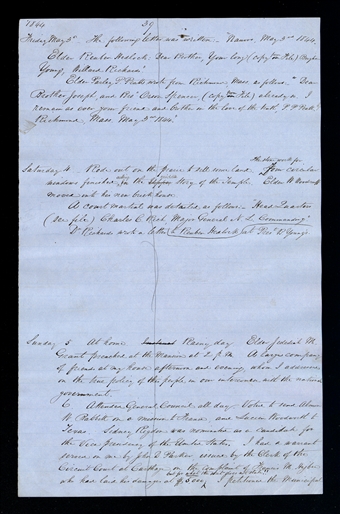 1844 39
Friday, May 3d The following letter was written. Nauvoo, May 3rd 1844.
Elder Reuben Hedlock, Dear Brother, Your long (copy on File) Brigham
Young, Willard Richards.
Elder Parley P. Pratt wrote from Richmond, Mass as follows, "Dear
Brother Joseph, and Bro Orson Spencer, (copy on File) already. I
remain as ever your friend and brother in the love of the truth, P. P. Pratt"
Richmond, Mass, May 3d 1844.
Saturday 4 Rode out on the prairie to sell some land.
windows finished in the story of the Temple. Elder W. Woodruff
moved into his new brick house.
A court martial was detailed as follows. Head Quarters
(see file) Charles C. Rich Major General N. L. Commanding"
Dr Richards wrote a letter to Reuben Hedlock, Prest B. Young
Sunday 5 At home. Rainy day Elder Jedediah M.
Grant preached at the Mansion at 2 p.m. A large company
of friends at my house afternoon and evening, when I addressed
on the true policy of this people in our intercourse with the national
government.
6 Attended General Council all day. Voted to send Almon
W. Babbitt on a mission to France and Lucien Woodworth to
Texas. Sidney Rigdon was nominated as a candidate for
the Vice presidency of the United States. I had a warrant
served on me by John D. Parker, issued by the Clerk of the
Circuit Court at Carthage, on the complaint of Francis M. Higbee
who has laid his damages at $5000, I petitioned the Municipal